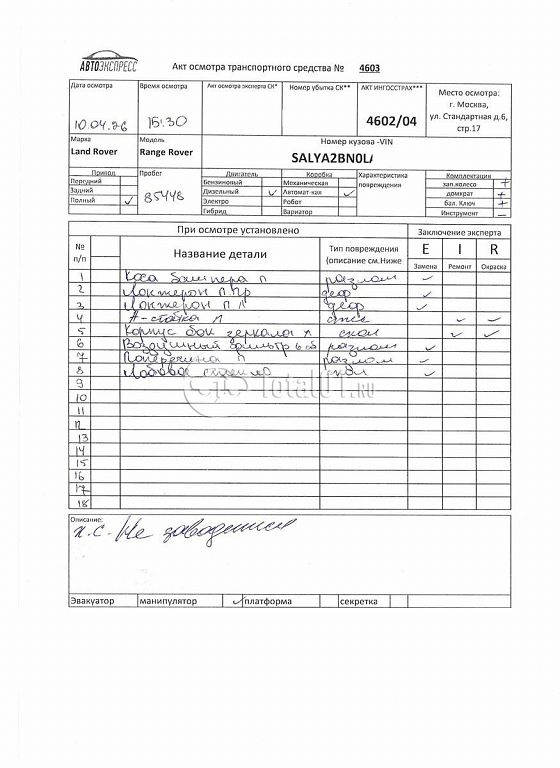 АВТОЭКСПРЕСС
Акт осмотра транспортного средства № 4603
Дата осмотра Время осмотра Акт осмотра эксперта СК* Номер убытка СК** АКТ ИНГОССТРАХ*** Место осмотра:
г. Москва,
10.04.26 15:30 4602/04 ул. Стандартная д.6,
стр.17
Марка Модель Номер кузова -VIN
Land Rover Range Rover SALYA2BN0L
Привод Пробег Двигатель Коробка Характеристика повреждения Комплектация
Передний Бензиновый Механическая зап.колесо +
Задний 85448 Дизельный ✓ Автомат-кая ✓ домкрат +
Полный ✓ Электро Робот бал. Ключ +
Гибрид Вариатор Инструмент –
При осмотре установлено Заключение эксперта
№ п/п Название детали Тип повреждения (описание см.Ниже E I R
Замена Ремонт Окраска
1 бампера п разлом ✓
2 Локтерон П Пр деф ✓
3 Локтерон П Л деф ✓
4 А-стойка Л ✓ ✓
5 Корпус бок зеркала л скол ✓ ✓
6 Воздушный фильтр в сб разлом ✓
7 П разлом ✓
8 Лобовое стекло скол ✓
9
10
11
12
13
14
15
16
17
18
Total01.ru
Описание:
Не заводится
Эвакуатор манипулятор ✓ платформа секретка